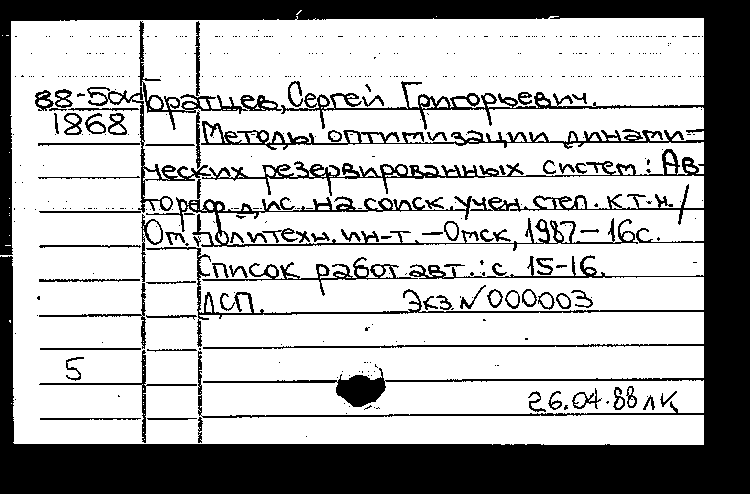 88-5дк Горатцев, Сергей Григорьевич.
1868 Методы оптимизации динами-
ческих резервированных систем: Ав-
тореф. дис. на соиск. учен. степ. к.т.н./
Ом. политехн. ин-т. — Омск, 1987 — 16с.
Список работ авт.: с. 15-16.
ДСП. Экз № 000003
5
26.04.88 лк